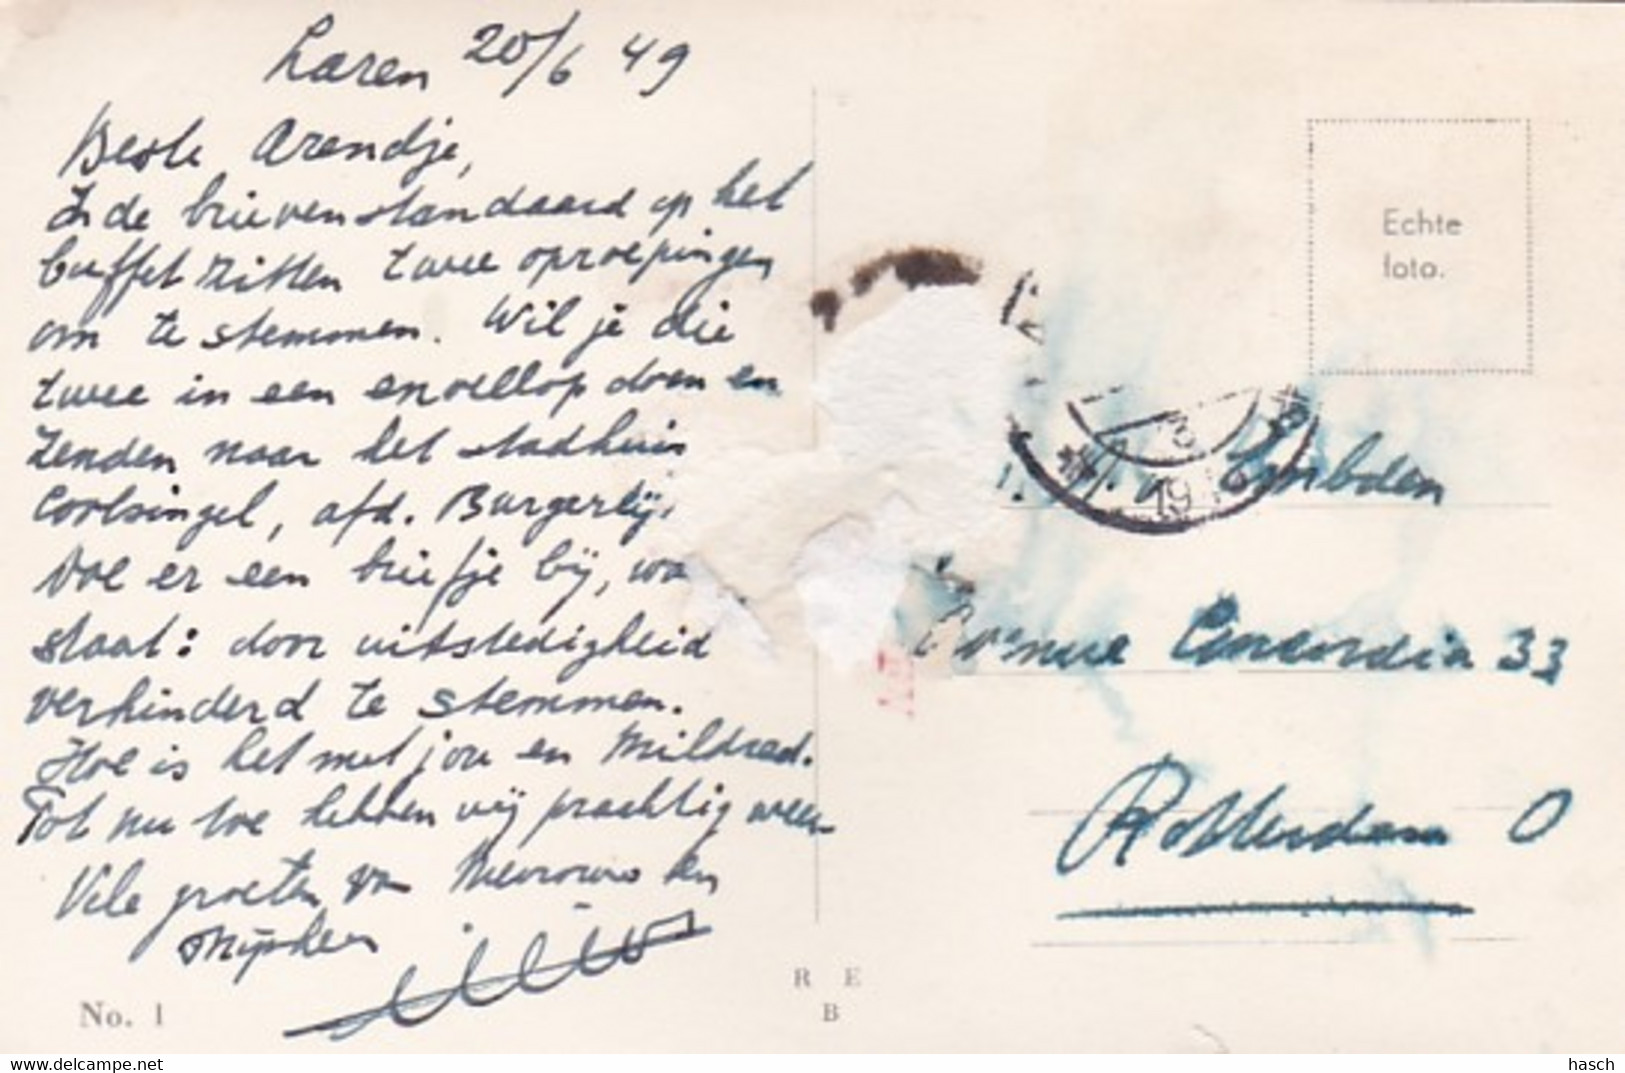 Laren 20/6 49
Beste Arendje,
In de brievenstandaard op het
buffet zitten twee oproepingen
om te stemmen. Wil je die
twee in een envellop doen en
zenden naar het stadhuis
Coolsingel, afd. Burgerlij
Doe er een briefje bij, wa
staat: door uitstedigheid
verhinderd te stemmen.
Hoe is het met jou en Mildred.
Tot nu toe hebben wij prachtig weer
Vele groeten van Mevrouw en
Mijnheer
No. 1
R E
B
Echte
foto.
19
Embden
Avenue Concordia 33
Rotterdam O
New city-card.com
hasch